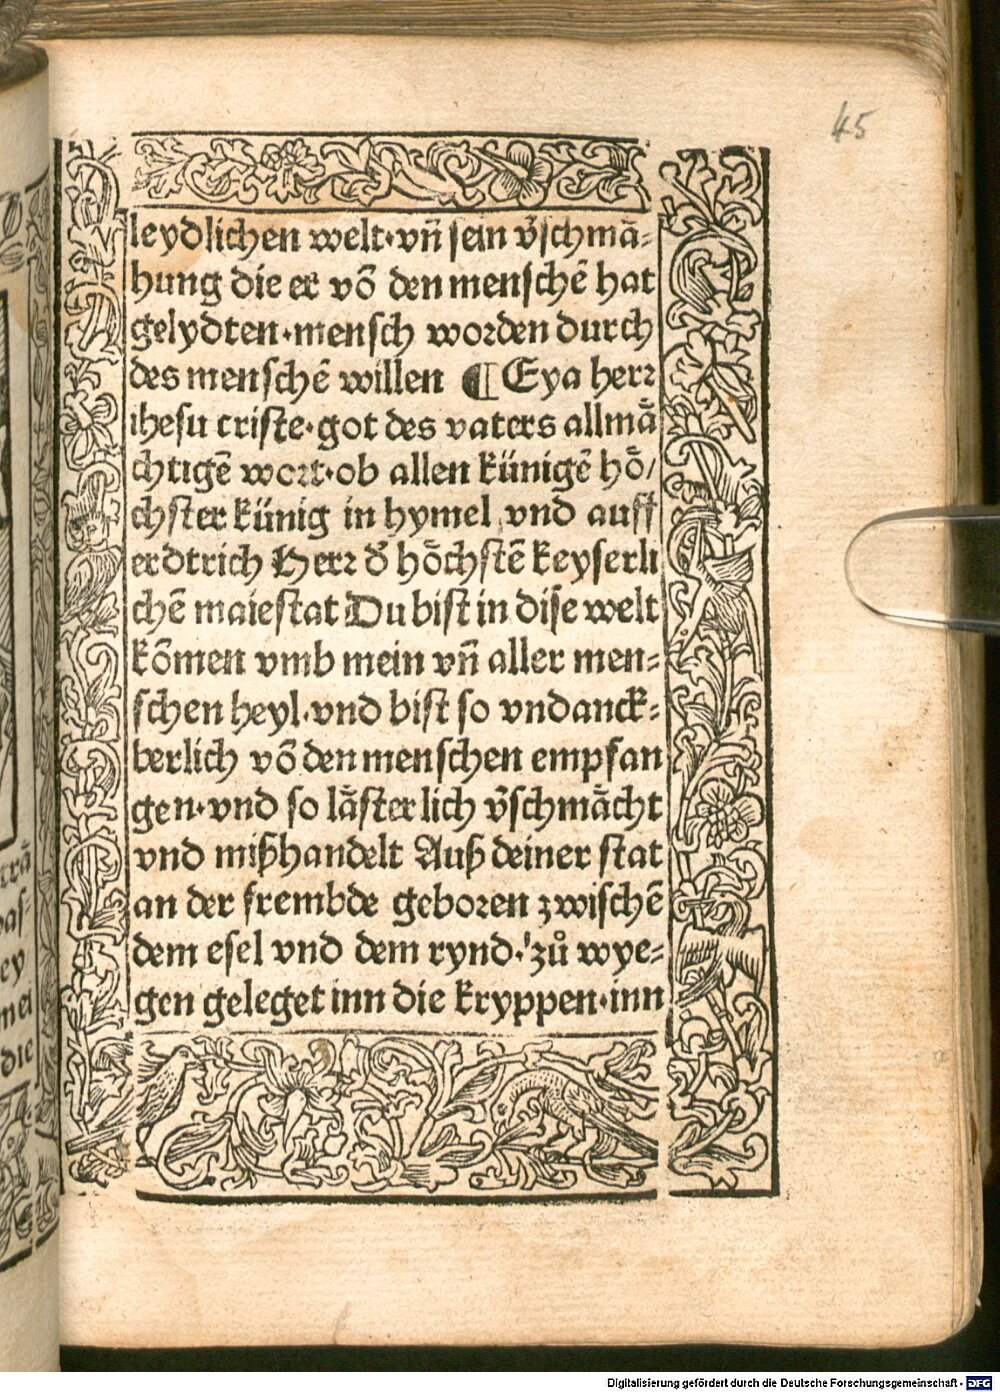 45
leydlichen welt·vn̄ sein v̓schmā-
hung die er vō den menschē hat
gelydten·mensch worden durch
des menschē willen ¶ Eya herr
ihesu criste·got des vaters allmä
chtigē wort·ob allen künigē hö/
chster künig in hymel vnd auff
erdtrich Herr d̓ höchstē keyserli
chē maiestat Du bist in dise welt
kōmen vmb mein vn̄ aller men-
schen heyl·vnd bist so vndanck-
berlich vō den menschen empfan
gen·vnd so lästerlich v̓schmächt
vnd mißhandelt Auß deiner stat
an der frembde geboren zwischē
dem esel vnd dem rynd·zů wye-
gen geleget inn die kryppen·inn
Digitalisierung gefördert durch die Deutsche Forschungsgemeinschaft - DFG